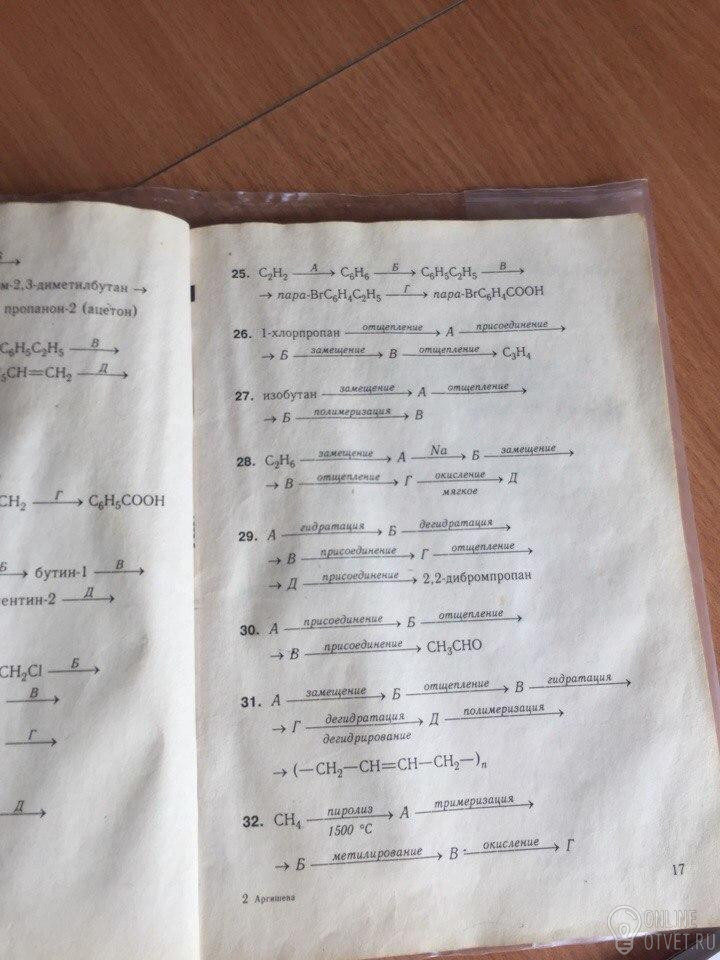 м-2,3-диметилбутан →
пропанон-2 (ацетон)
C₆H₅C₂H₅ —В→
CH=CH₂ —Д→
CH₂ —Г→ C₆H₅COOH
Б→ бутин-1 —В→
ентин-2 —Д→
CH₂Cl —Б→
—В→
—Г→
—Д→
25. C₂H₂ —А→ C₆H₆ —Б→ C₆H₅C₂H₅ —В→
→ пара-BrC₆H₄C₂H₅ —Г→ пара-BrC₆H₄COOH
26. 1-хлорпропан —отщепление→ А —присоединение→
→ Б —замещение→ В —отщепление→ C₃H₄
27. изобутан —замещение→ А —отщепление→
→ Б —полимеризация→ В
28. C₂H₆ —замещение→ А —Na→ Б —замещение→
→ В —отщепление→ Г —окисление мягкое→ Д
29. А —гидратация→ Б —дегидратация→
→ В —присоединение→ Г —отщепление→
→ Д —присоединение→ 2,2-дибромпропан
30. А —присоединение→ Б —отщепление→
→ В —присоединение→ CH₃CHO
31. А —замещение→ Б —отщепление→ В —гидратация→
→ Г —дегидратация дегидрирование→ Д —полимеризация→
→ (—CH₂—CH=CH—CH₂—)ₙ
32. CH₄ —пиролиз 1500 °C→ А —тримеризация→
→ Б —метилирование→ В —окисление→ Г
2 Аргишева
17
ONLINE
OTVET.RU